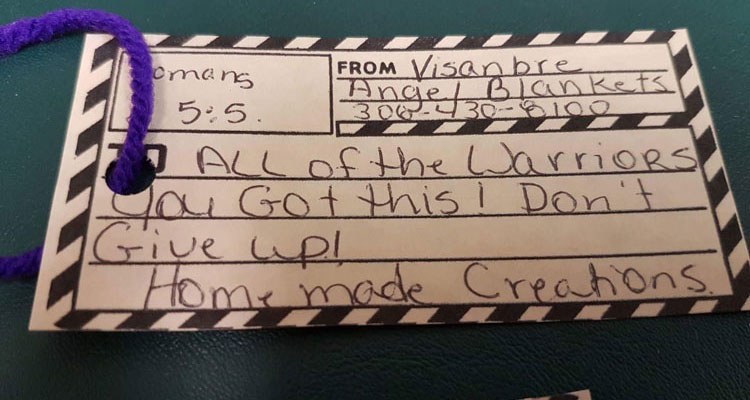 omans
5:5.
FROM Visanbre
Angel Blankets
306-430-8100
TO ALL of the Warriors
You Got this! Don't
Give up!
Home made Creations.